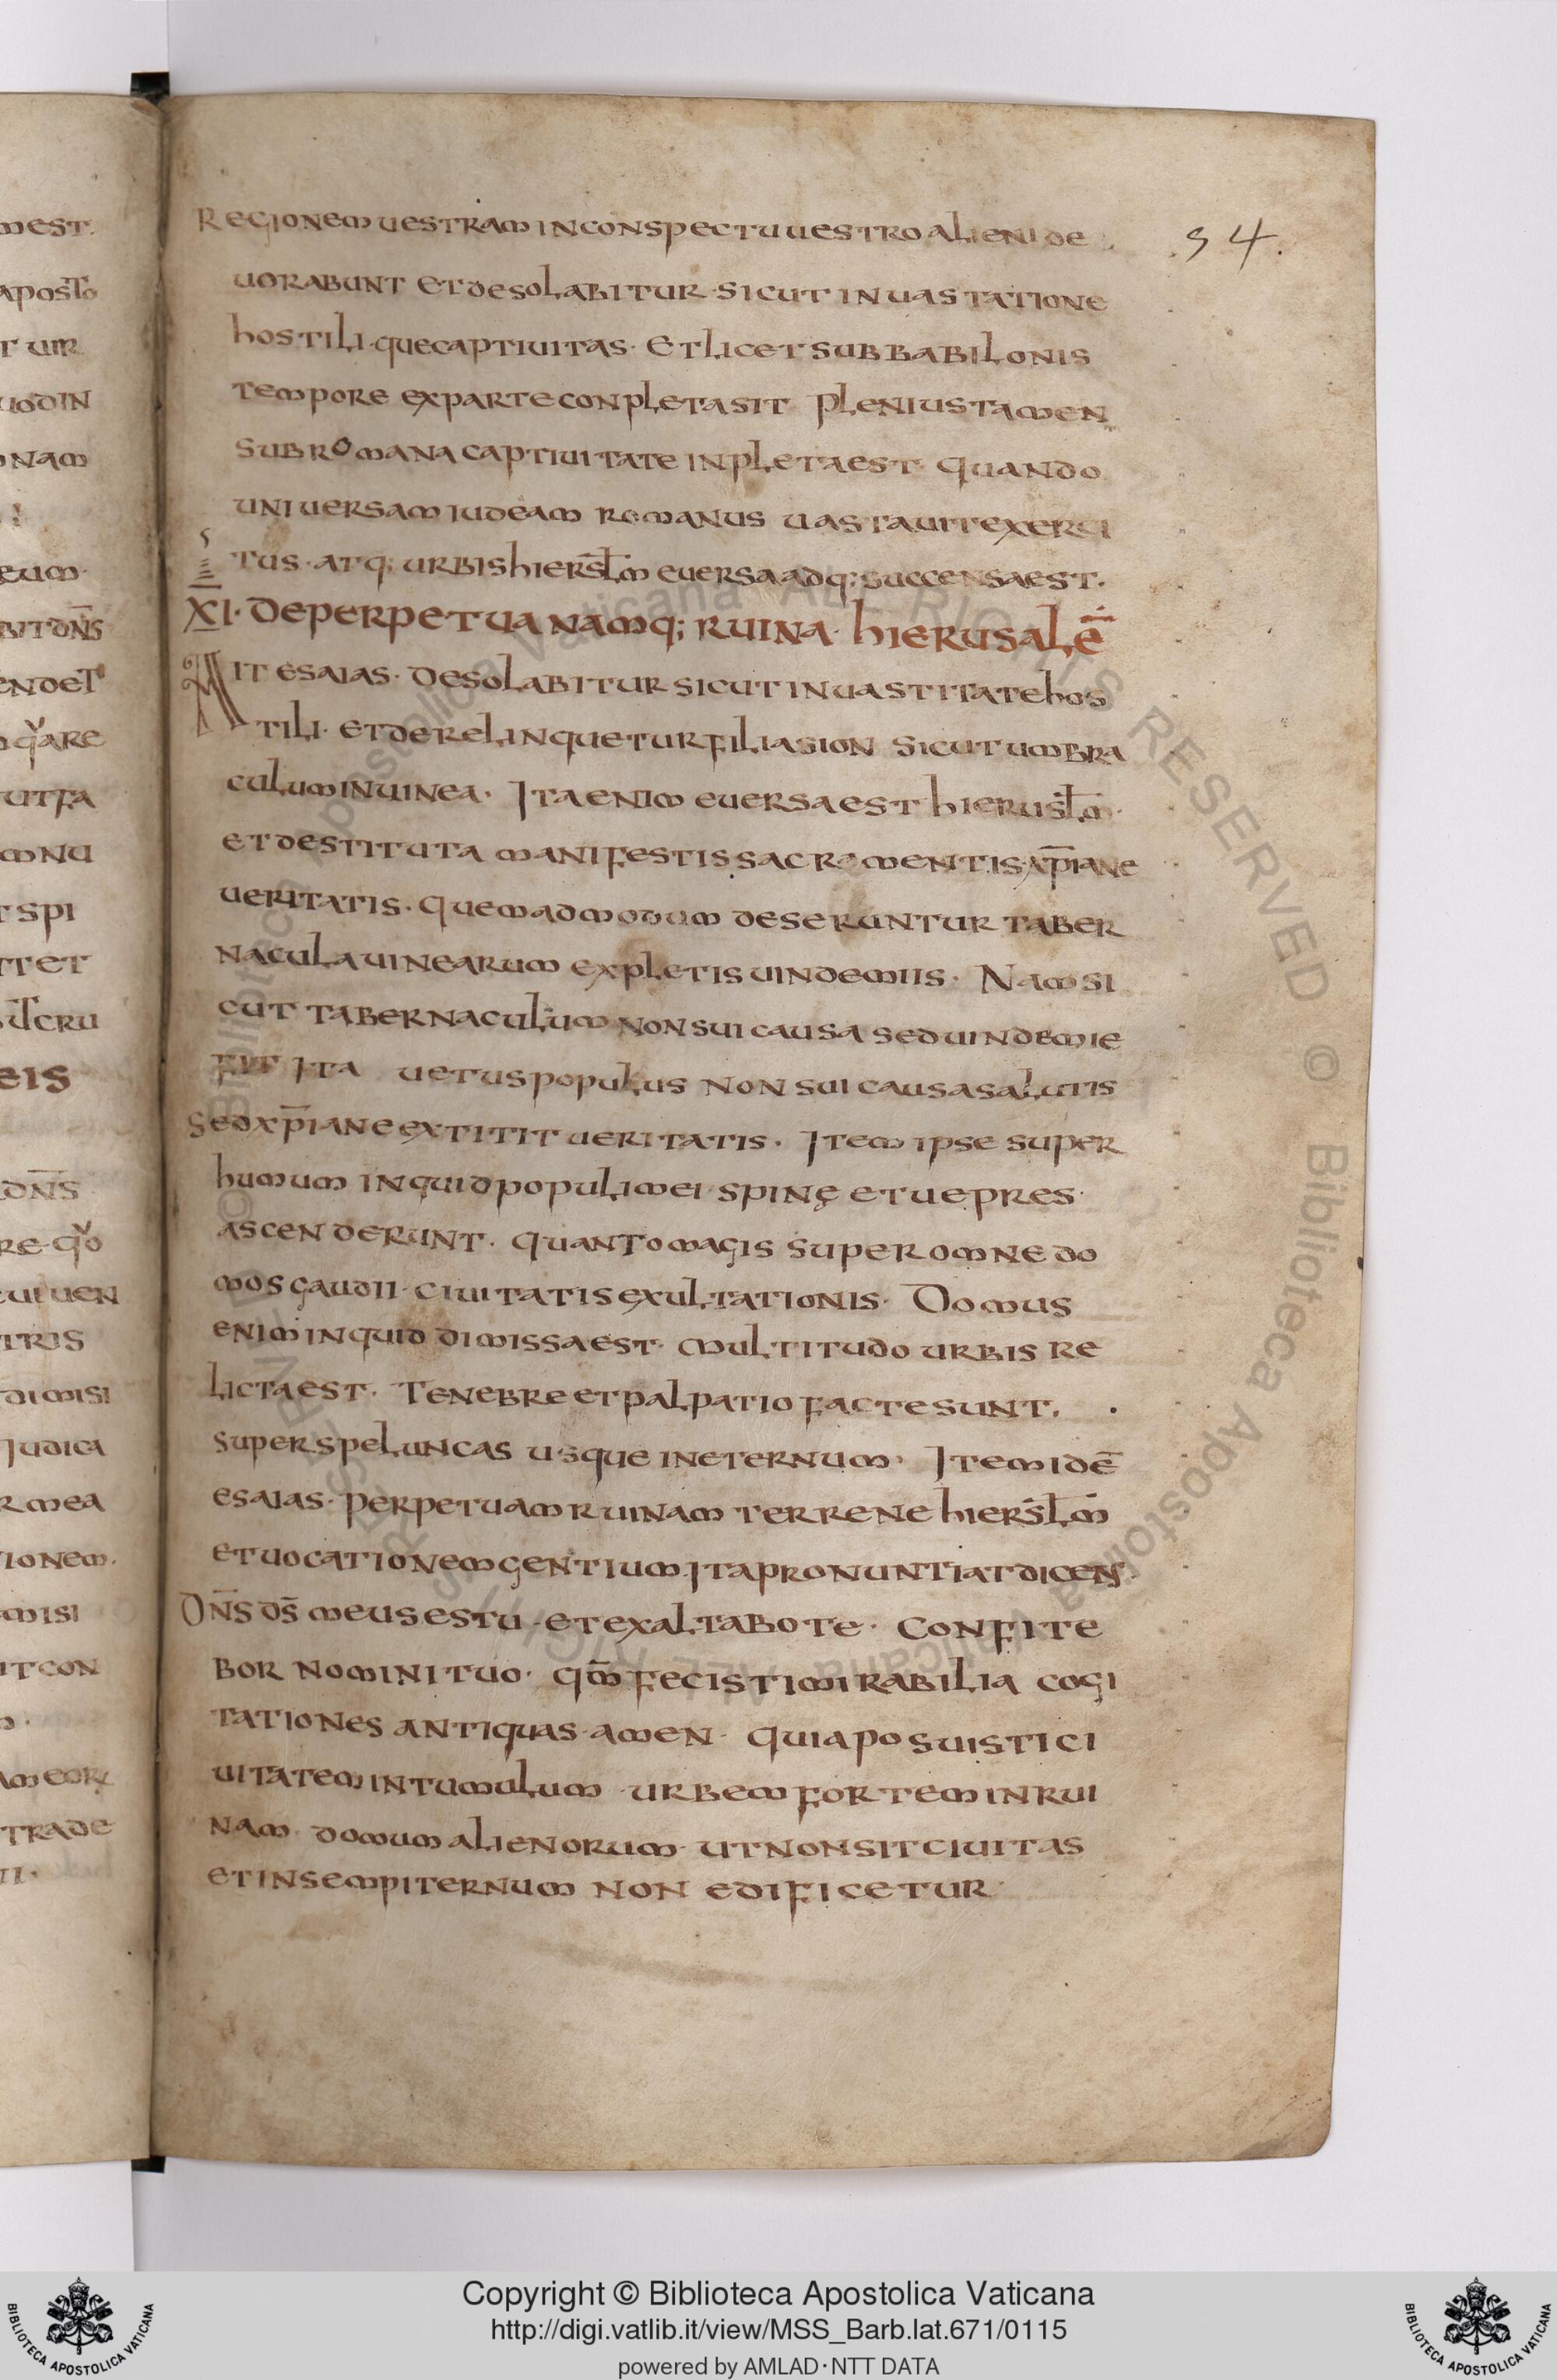 mest.
apost̅o
t uir
uodin
nam
eum.
bit dn̅s
endet
qͮare
utfa
mnu
t spi
ttet
ul̅cru
eis
dn̅s
re qͮo
cui uen
tris
dimisi
Judica
r mea
ionem.
misi
it con
trade
Regionem uestram inconspectu uestro alieni de
54.
uorabunt et desolabitur sicut in uastatione
hostili que captiuitas. Et licet sub babilonis
tempore ex parte conpleta sit plenius tamen
sub romana captiuitate inpleta est. quando
uniuersam iudeam romanus uastauit exerci
tus. atq; urbis hiersl̅m euersa adq; succensa est.
XI. De perpetua namq; ruina. hierusale̅
Ait esaias. Desolabitur sicut in uastitate hos
tili. et derelinquetur filia sion sicut umbra
culum in uinea. Ita enim euersa est hierusl̅m.
et destituta manifestis sacramentis xp̅iane
ueritatis. quemadmodum deseruntur taber
nacula uinearum expletis uindemiis. Nam si
cut tabernaculum non sui causa sed uindemie
fit Ita uetus populus non sui causa salutis
Sed xp̅iane extitit ueritatis. Item ipse super
humum inquid populi mei spinę et uepres
ascenderunt. quanto magis super omne do
mos gaudii. ciuitatis exultationis. Domus
enim inquid dimissa est. multitudo urbis re
licta est. Tenebre et palpatio facte sunt.
super speluncas usque in eternum. Item ide̅
esaias. perpetuam ruinam terrene hiersl̅m
et uocationem gentium Ita pronuntiat dicens.
Dn̅s ds̅ meus es tu. et exaltabo te. Confite
bor nomini tuo. qm̅ fecisti mirabilia cogi
tationes antiquas amen. quia posuisti ci
uitatem in tumulum urbem fortem in rui
nam. domum alienorum. ut non sit ciuitas
et in sempiternum non edificetur
Copyright © Biblioteca Apostolica Vaticana
http://digi.vatlib.it/view/MSS_Barb.lat.671/0115
powered by AMLAD·NTT DATA
BIBLIOTECA APOSTOLICA VATICANA
BIBLIOTECA APOSTOLICA VATICANA
© Biblioteca Apostolica Vaticana ALL RIGHTS RESERVED © Biblioteca Apostolica Vaticana ALL RIGHTS RESERVED